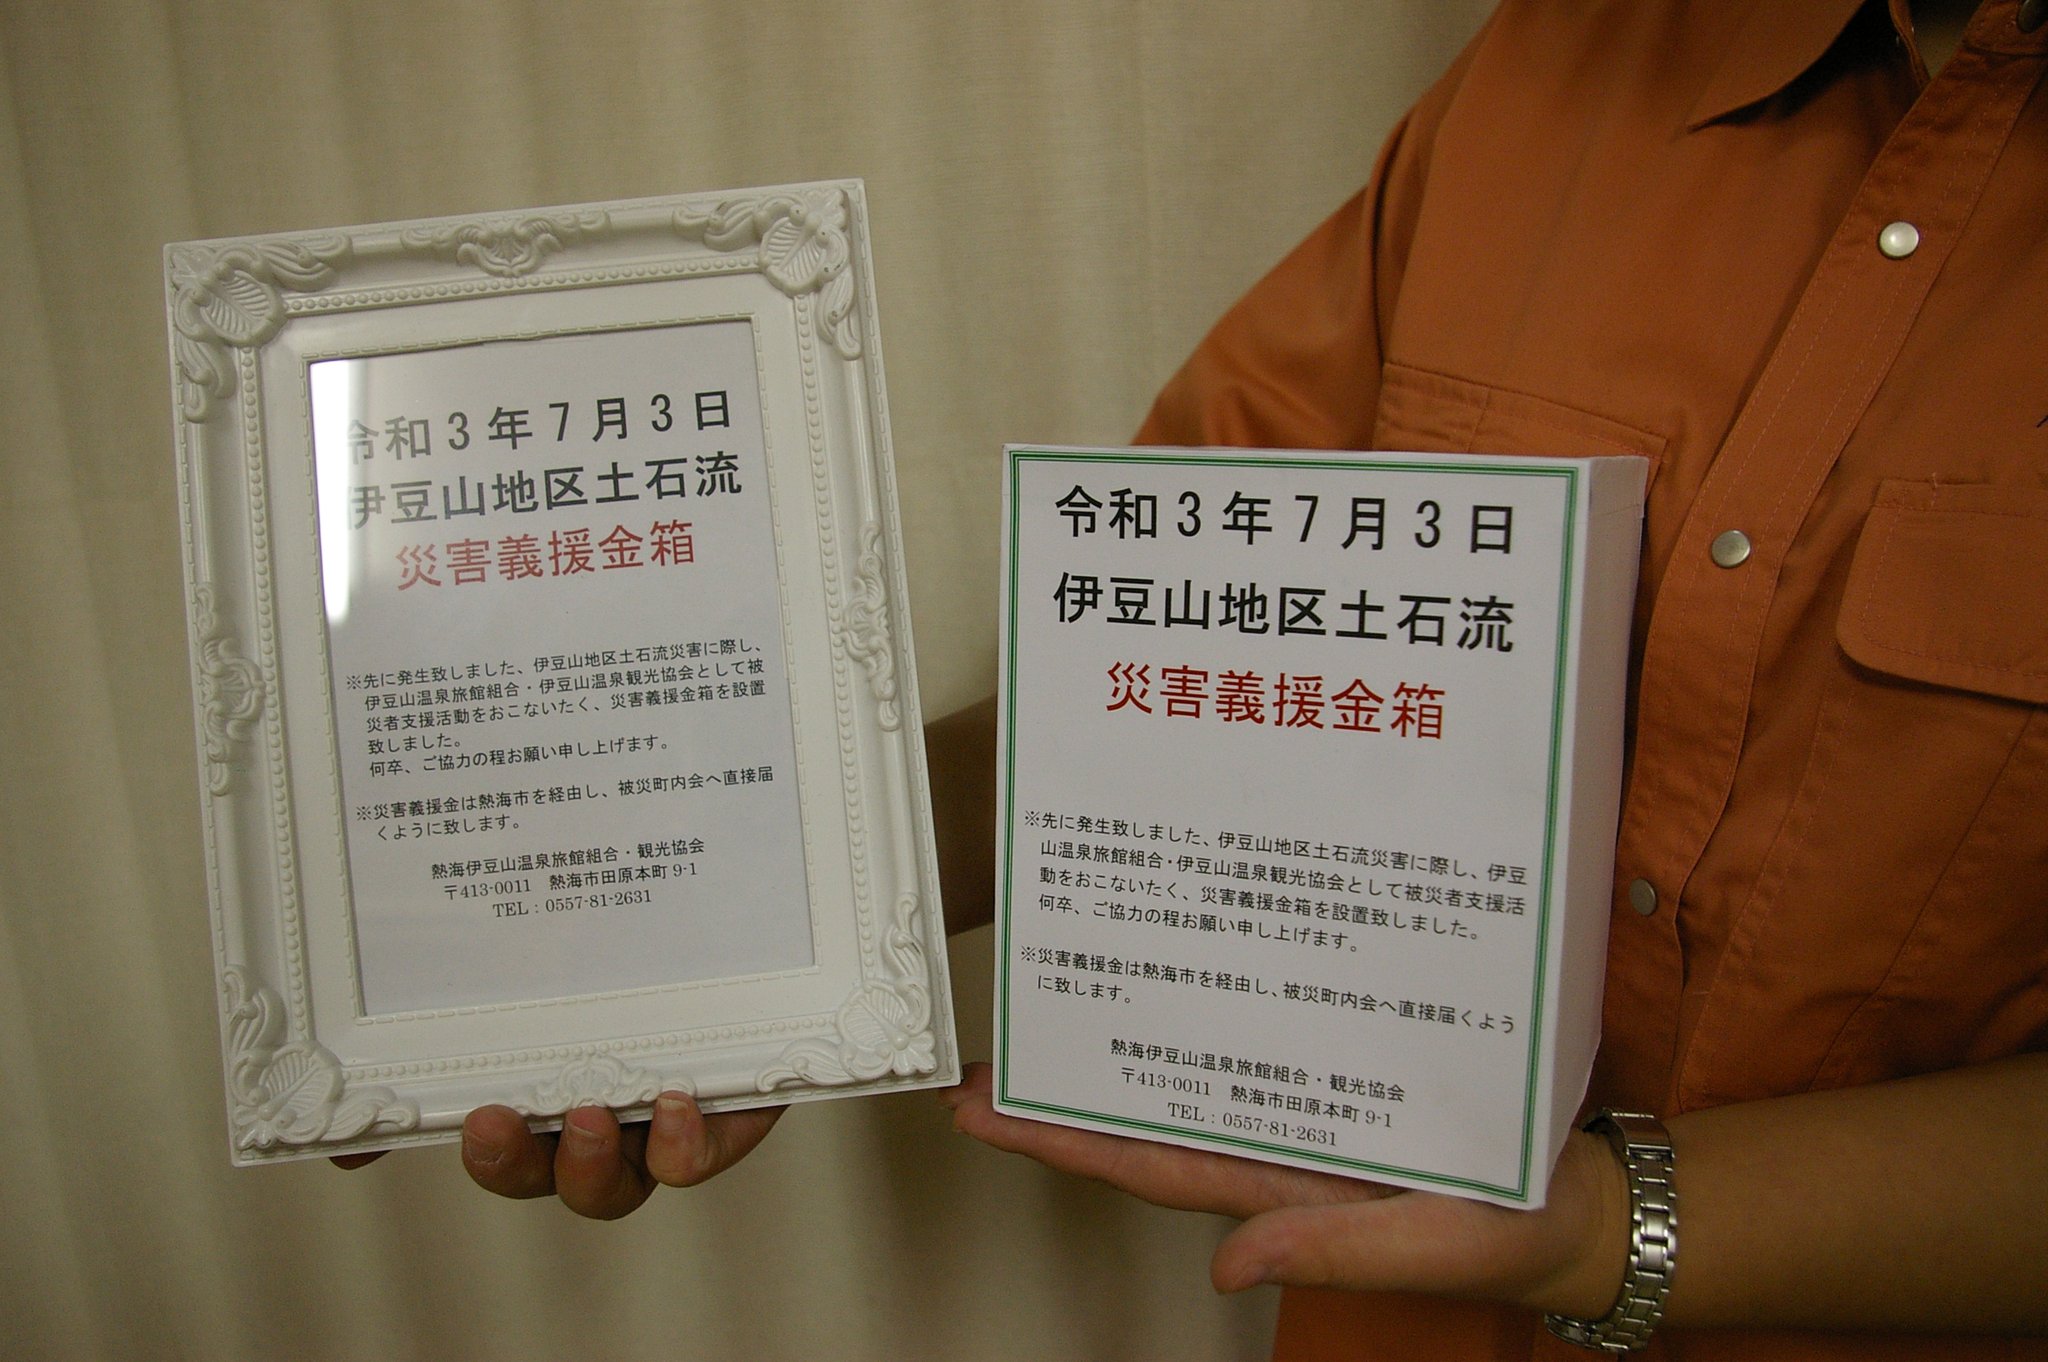 令和3年7月3日
伊豆山地区土石流
災害義援金箱
※先に発生致しました、伊豆山地区土石流災害に際し、
伊豆山温泉旅館組合・伊豆山温泉観光協会として被
災者支援活動をおこないたく、災害義援金箱を設置
致しました。
何卒、ご協力の程お願い申し上げます。
※災害義援金は熱海市を経由し、被災町内会へ直接届
くように致します。
熱海伊豆山温泉旅館組合・観光協会
〒413-0011 熱海市田原本町 9-1
TEL：0557-81-2631
令和3年7月3日
伊豆山地区土石流
災害義援金箱
※先に発生致しました、伊豆山地区土石流災害に際し、伊豆
山温泉旅館組合・伊豆山温泉観光協会として被災者支援活
動をおこないたく、災害義援金箱を設置致しました。
何卒、ご協力の程お願い申し上げます。
※災害義援金は熱海市を経由し、被災町内会へ直接届くよう
に致します。
熱海伊豆山温泉旅館組合・観光協会
〒413-0011 熱海市田原本町 9-1
TEL：0557-81-2631